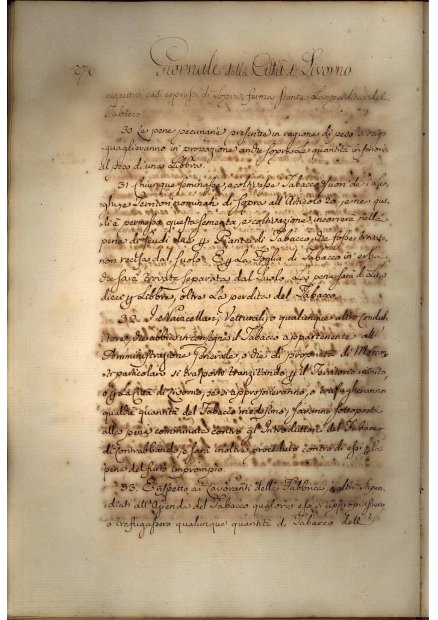 270 Giornale della Città di Livorno
respettivi casi espressi di sopra, ferma stante la perdita del
Tabacco
30. Le pene pecuniarie prescritte in ragione di peso si rag-
guaglieranno in proporzione anche sopra le quantità inferiori
al peso di una Libbra.
31. Chiunque seminasse, o coltivasse Tabacco fuori de i casi,
e fuori nominati di sopra all Articolo 20, je ne que,
li è permessa questa sementa, e coltivazione incorrerà nella
pena di scudi due Piante di Tabacco, che fosse trovate
non recisa dal suolo. E la Foglia di Tabacco in erba
che sarà trovata separata dal Suolo, la pena sarà di Lire
dieci Libbra, oltre la perdita del Tabacco
32. I Navicellari, Vetturali, o qualunque altro Condut-
tore debba in consegna il Tabacco appartenente all
Amministrazione Generale, o sia di proprietà di
particolari si trasporti tranzitando il Territorio riunito,
o la Città di Livorno, se si approprieranno, o trafugheranno
qualche quantità del Tabacco medesimo, saranno sottoposti
alla pena comminata contro gl'Introduttori del Tabacco
di contrabbando, e sarà inoltre proceduto contro di essi
pena del furto improprio
33. E rispetto a Lavoranti della Fabbrica, e altri Stipen-
diati all'Azienda del Tabacco qualora essi si appropiassero
o trafugassero qualunque quantità di Tabacco dell